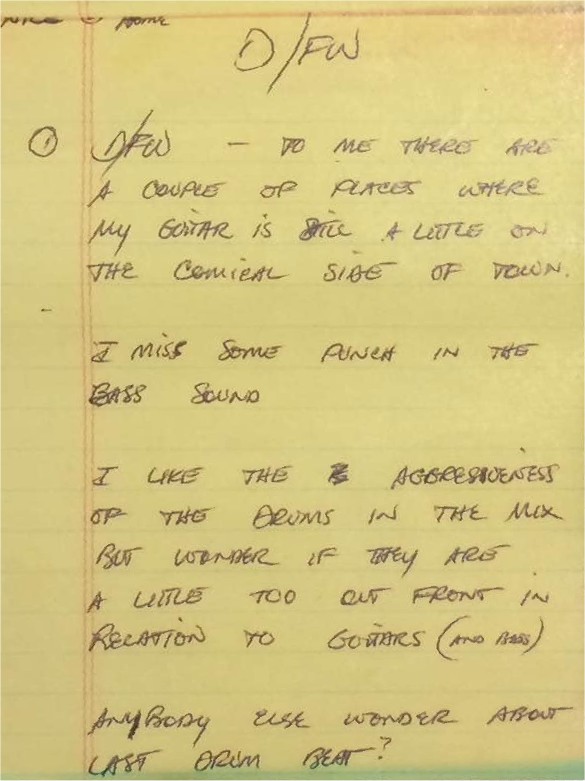 HOME
D/FW
① D/FW – TO ME THERE ARE
A COUPLE OF PLACES WHERE
MY GUITAR IS STILL A LITTLE ON
THE COMICAL SIDE OF TOWN.
I MISS SOME PUNCH IN THE
BASS SOUND
I LIKE THE AGGRESIVENESS
OF THE DRUMS IN THE MIX
BUT WONDER IF THEY ARE
A LITTLE TOO OUT FRONT IN
RELATION TO GUITARS (AND BASS)
ANYBODY ELSE WONDER ABOUT
LAST DRUM BEAT?